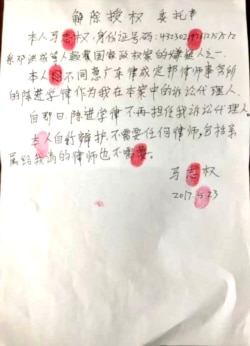 解除授权委托书
本人马志权,身份证号码:
系邓洪成等人颠覆国家政权案的嫌疑人之一.
本人 不同意广东律成定邦律师事务所
的陈进学律作为我在本案中的诉讼代理人.
自即日陈进学律不再担任我诉讼代理人.
本人自行辩护,不需要任何律师,包括亲
属给我请的律师也不需要.
马志权
2017.5.23